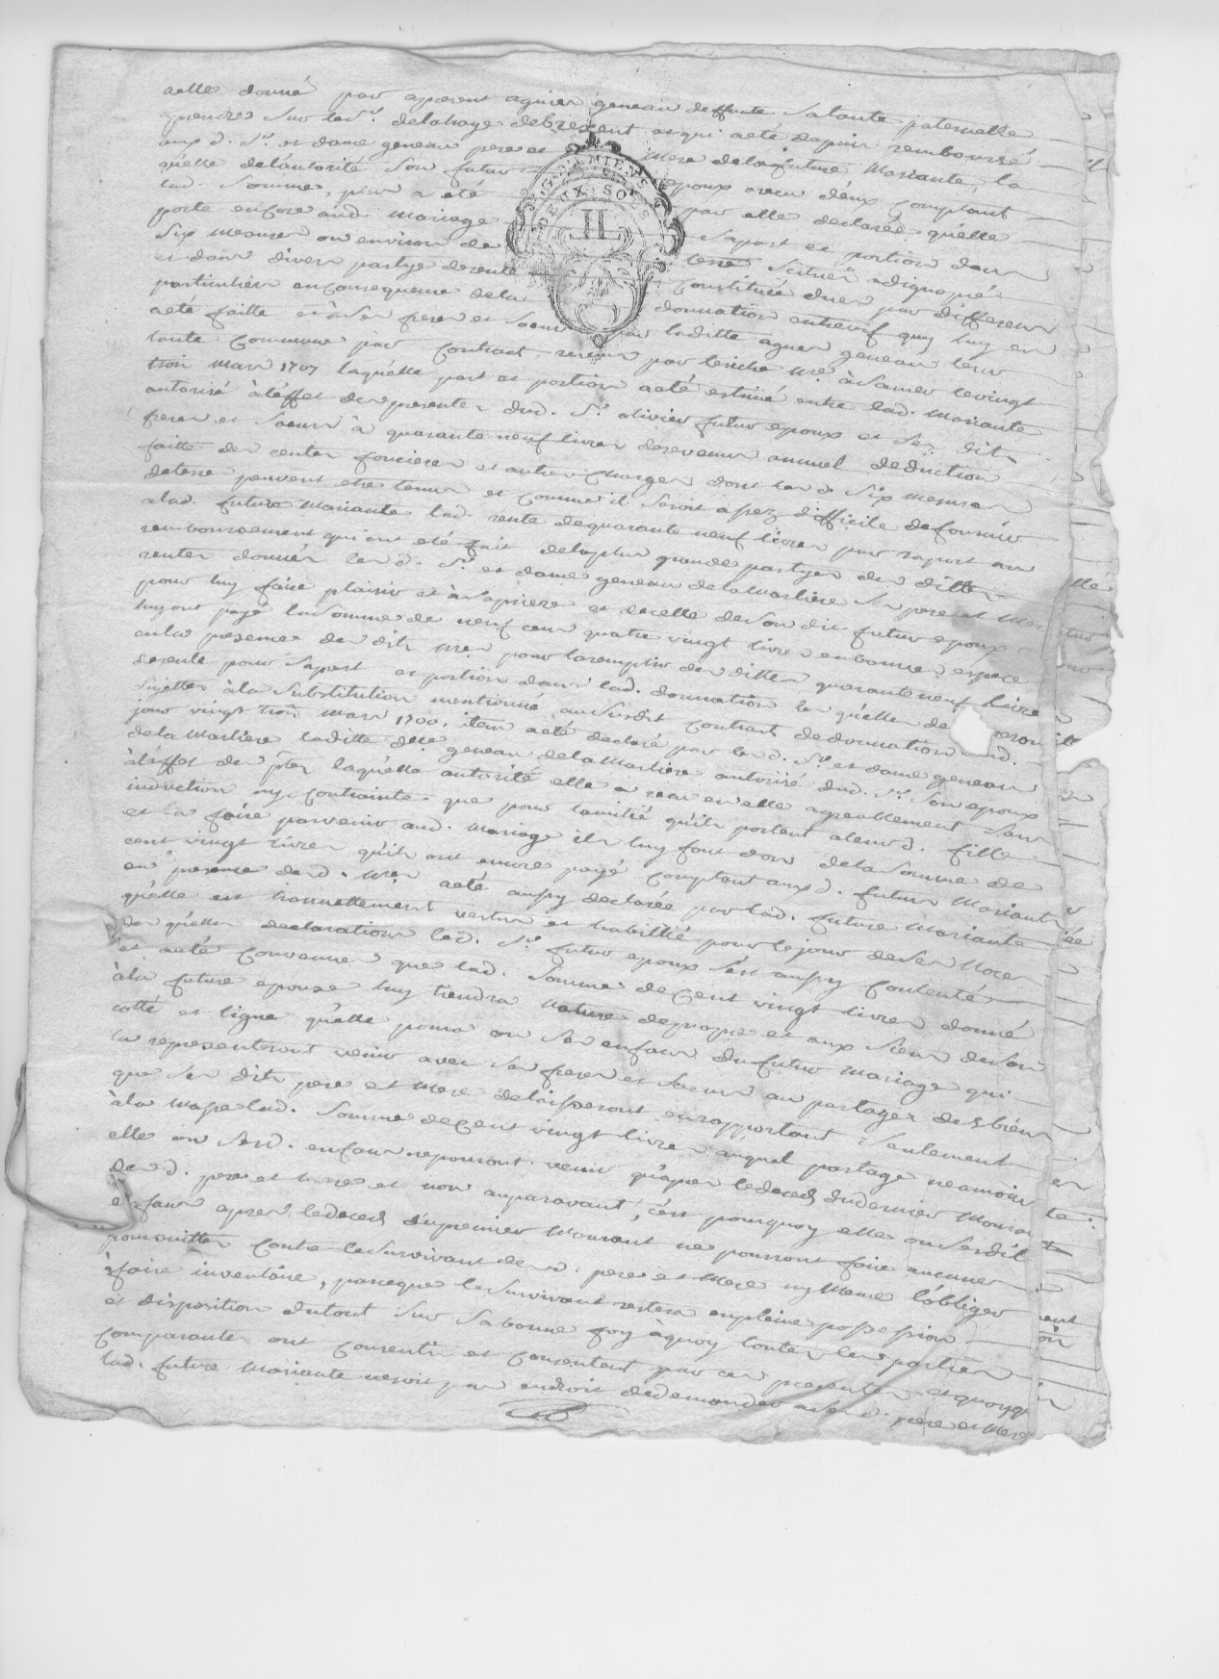 aelle donné par agnes geneau deffunte sa tante paternelle
prendre sur led. Sr. delahaye debrexent et qui a eté depuis remboursé
aux d. Sr. et dame geneau pere et mere de la future Mariante, la
quelle del'autorité son futur epoux a recu d'eux comptant
lad. somme, plus a eté par elle declarée quelle
porte encore aud. Mariage sa part et portion dans
Six mesures ou environ de terre scituées a dignopré
et dans divers partyes de rente constituée dues par differens
particuliers en consequence de la donnation entrevif quy luy en
a eté faitte et à ses freres et soeurs par laditte agnes geneau leur
tante commune par contract receu par leriche Nre. à Samer le vingt
trois mars 1707 laquelle part et portion a eté estimé entre lad. Mariante
autorisé à l'effet des presentes dud. Sr. olivier futur epoux et ses dits
freres et soeurs à quarante neuf livres de revenu annuel deduction
faitte des centes foncieres et autres charges dont les d. Six mesures
de terre peuvent etre tenues et comme il seroit assez difficile de fournir
alad. future Mariante lad. rente de quarante neuf livres par raport au
remboursement qui ont eté fait de la plus grande partyes des dittes
rentes donnés les d. Sr. et dame geneau de la Martiere ses pere et Mere
pour luy faire plaisir et à sa priere et de celle de son dit futur epoux
luy ont payé la somme de neuf cens quatre vingt livres en bonnes especes
en la presence des dits Nres pour la remplir des dittes quarante neuf livres
de rente pour sa part et portion dans lad. donnation lesquelles de
sujettes à la substitution mentionné au susdit contract de donnation dud.
jour vingt trois mars 1700. item a eté declaré par les d. Sr. et dame geneau
de la Martiere laditte delle geneau de la Martiere autorisé dud. Sr. son epoux
à l'effet des ptes laquelle autorité elle a receu en elle agreablement sans
induction ny contrainte que pour l'amitié qu'ils portent a leur d. fille
et la faire parvenir aud. Mariage ils luy font don de la somme de
cent vingt livres qu'ils ont encore payé comptant aux d. futurs Mariants
en presence desd. Nres a eté aussy declarée par lad. future Mariante
quelle est honnettement vestue et habillié pour le jour de ses Noces
de quelles declaration led. Sr. futur epoux s'est aussy contenté
et a eté convenue que lad. somme de cent vingt livres donné
à la future epouse luy tiendra Nature de propre et aux siens de son
cotté et ligne quelle poura ou ses enfans du futur mariage qui
la representeront venir avec ses freres et soeurs au partages des biens
que ses dits pere et Mere delaisseront en rapportant seulement
à la masse lad. somme de cent vingt livres auquel partage neamoins
elle ou sesd. enfans ne pouront venir qu'apres le deces du dernier mourant
desd. pere et mere et non auparavant, c'est pourquoy elle ou sesdits
enfans apres le deces du premier Mourant ne pourront faire aucunes
poursuittes contre le survivant desd. pere et Mere ny Meme l'obliger
à faire inventaire, parceque le survivant restera en pleine possession
et disposition du tout sur sa bonne foy à quoy toutes les parties
comparantes ont consenti et consentent par ces presentes et quoyque
lad. future Mariante ne soit pas en droit de demander a ses d. pere et Mere